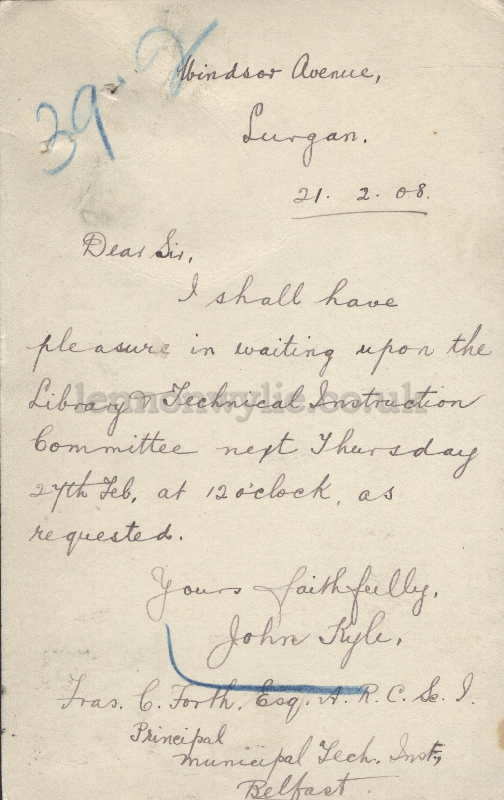 39.2
Windsor Avenue,
Lurgan.
21. 2. 08.
Dear Sir,
I shall have
pleasure in waiting upon the
Library & Technical Instruction
lennonwylie.co.uk
Committee next Thursday
27th Feb, at 12 o'clock, as
requested.
Yours faithfully,
John Kyle.
Fras. C. Forth, Esq. A. R. C. Sc. I.
Principal
Municipal Tech. Inst,
Belfast.